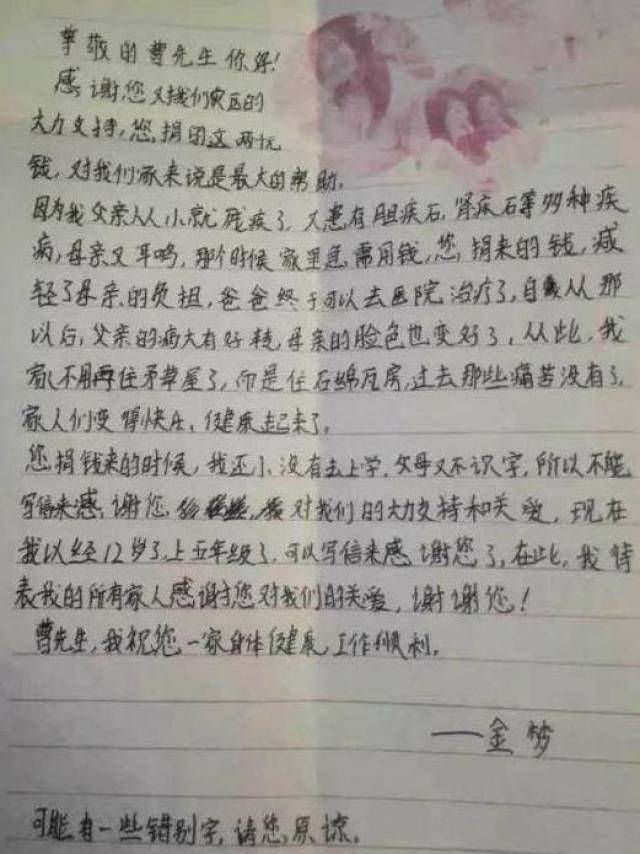 尊敬的曹先生你好!
感谢您对我们灾区的
大力支持,您捐的这两忨
钱,对我们家来说是最大的帮助。
因为我父亲从小就残疾了,又患有胆疾石,肾床石等多种疾
病,母亲又耳鸣,那个时候家里急需用钱,您捐来的钱,减
轻了母亲的负担,爸爸终于可以去医院治疗了,自从那
以后,父亲的病大有好转,母亲的脸色也变好了,从此,我
家不用再住矛草屋了,而是住石绵瓦房,过去那些痛苦没有了,
家人们变得快乐、健康起来了。
您捐钱来的时候,我还小,没有去上学,父母又不识字,所以不能
写信来感谢您,对我们的大力支持和关爱,现在
我以经12岁了,上五年级了,可以写信来感谢您了,在此,我待
表我的所有家人感谢您对我们的关爱,谢谢您!
曹先生,我祝您一家身体健康,工作顺利。
——金梦
可能有一些错别字,请您原谅。